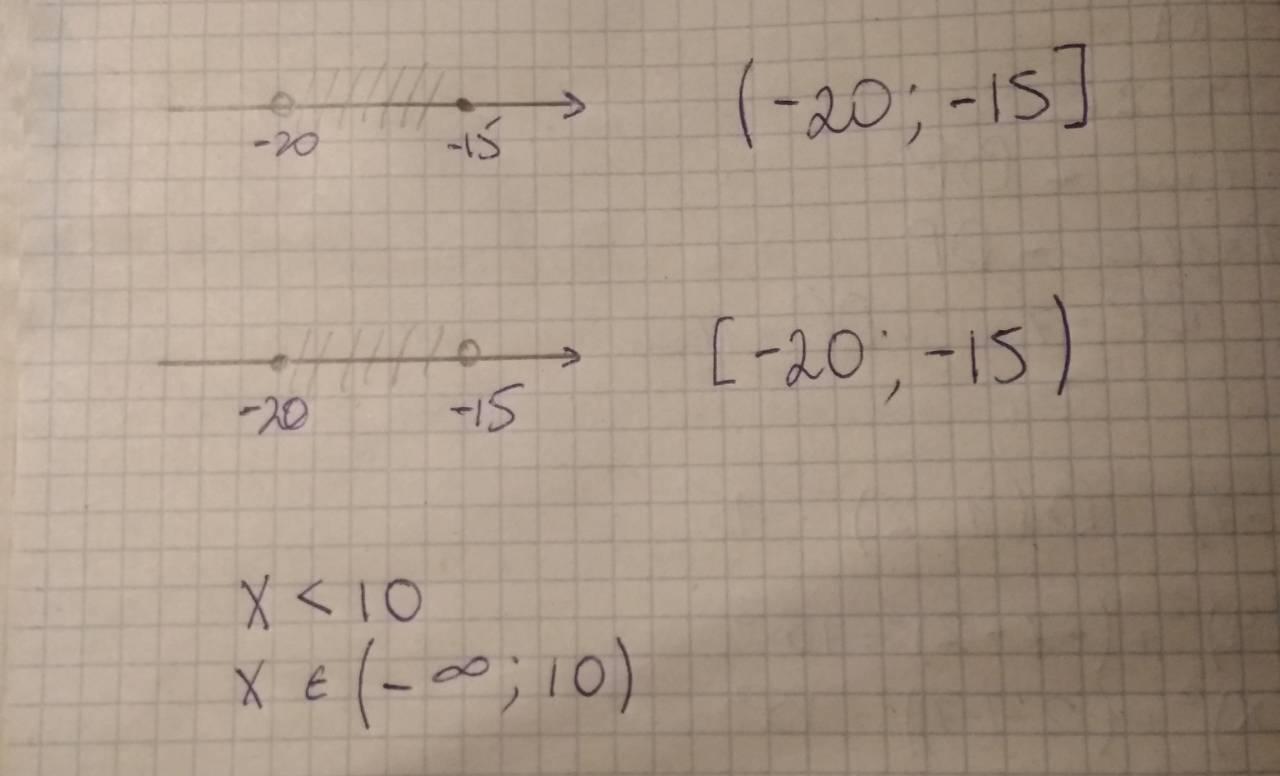 -20 -15 (-20; -15]
-20 -15 [-20; -15)
x < 10
x ∈ (-∞; 10)